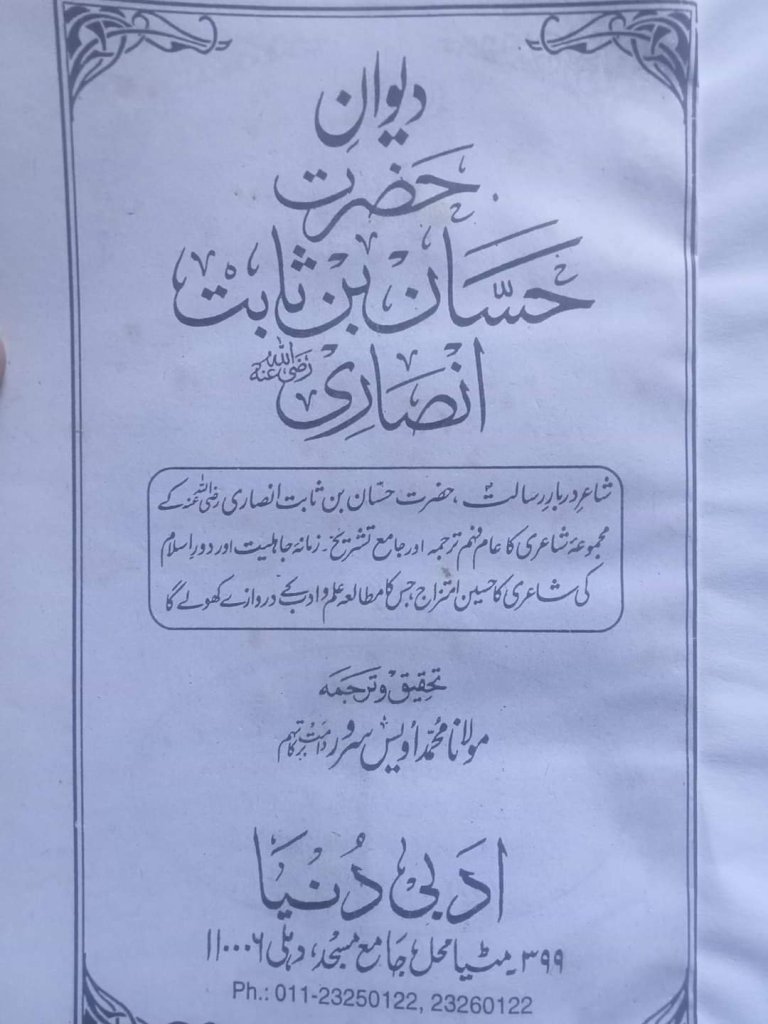 دیوانِ
حضرت
حسّان بن ثابت
انصاری رضی اللہ عنہ
شاعرِ دربارِ رسالت ؐ، حضرت حسّان بن ثابت انصاری رضی اللہ عنہ کے
مجموعۂ شاعری کا عام فہم ترجمہ اور جامع تشریح۔ زمانۂ جاہلیت اور دورِ اسلام
کی شاعری کا حسین امتزاج، جس کا مطالعہ علم و ادب کے دروازے کھولے گا
تحقیق و ترجمہ
مولانا محمّد اُویس سرور دامت برکاتہم
ادبی دُنیا
۳۹۹۔ مٹیا محل، جامع مسجد، دہلی ۱۱۰۰۰۶
Ph.: 011-23250122, 23260122